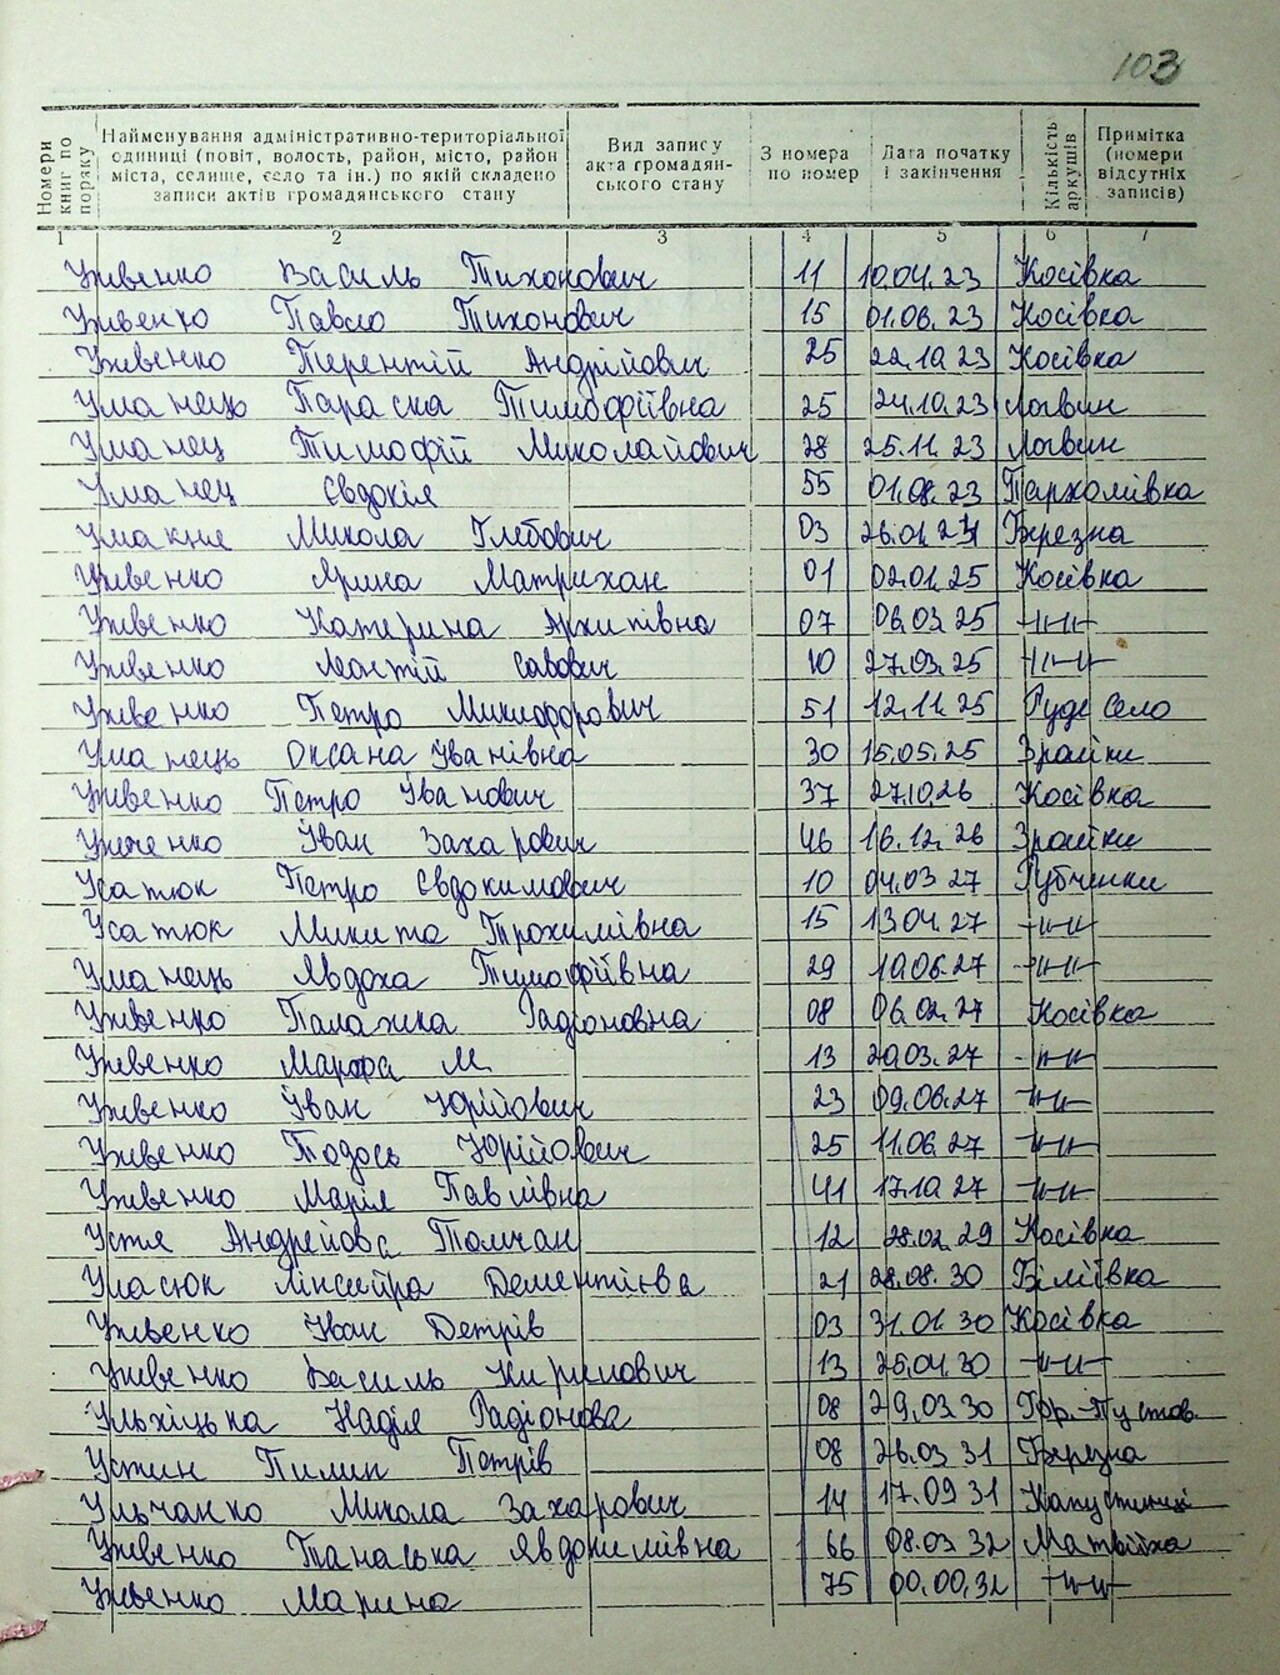 103
Номери книг по порядку
Найменування адміністративно-територіальної одиниці (повіт, волость, район, місто, район міста, селище, село та ін.) по якій складено записи актів громадянського стану
Вид запису акта громадянського стану
З номера по номер
Дата початку і закінчення
Кількість аркушів
Примітка (номери відсутніх записів)
1 2 3 4 5 6 7
Ужвенко Василь Тихонович 11 10.04.23 Косівка
Ужвенко Павло Тихонович 15 01.06.23 Косівка
Ужвенко Терентій Андрійович 25 22.10.23 Косівка
Уманець Параска Тимофіївна 25 24.10.23 Логвин
Уманец Тимофій Миколайович 28 25.11.23 Логвин
Уманец Євдокія 55 01.08.23 Пархомівка
Микола Глебович 03 26.01.24 Березна
Ужвенко Ярина 01 02.01.25 Косівка
Ужвенко Катерина Архипівна 07 06.03.25 -//-//-
Ужвенко Леонтій Савович 10 27.03.25 -//-//-
Ужвенко Петро Микифорович 51 12.11.25 Руде Село
Уманець Оксана Іванівна 30 15.05.25 Зрайки
Ужвенко Петро Іванович 37 27.10.26 Косівка
Іван Захарович 46 16.12.26 Зрайки
Усатюк Петро Євдокимович 10 04.03.27 Рубченки
Усатюк Микита Трохимівна 15 13.04.27 -//-//-
Уманець Явдоха Тимофіївна 29 10.06.27 -//-//-
Ужвенко Палажка Радіоновна 08 06.02.27 Косівка
Ужвенко Марфа М. 13 20.03.27 -//-//-
Ужвенко Іван Юрійович 23 09.06.27 -//-//-
Ужвенко Тодось Юрійович 25 11.06.27 -//-//-
Ужвенко Марія Павлівна 41 17.10.27 -//-//-
Устя Андрейова Толчан 12 28.02.29 Косівка
Умасюк Дементієва 21 28.08.30 Біліївка
Ужвенко Іван Петрів 03 31.01.30 Косівка
Ужвенко Василь Кирилович 13 25.04.30 -//-//-
Ульхіцька Надія Радіонова 08 29.03.30 Гор.-Пустов.
Устин Пилип Петрів 08 26.03.31 Березна
Ульчанко Микола Захарович 14 17.09.31
Ужвенко Танаська Явдокимівна 66 08.03.32 Матвіїха
Ужвенко Марина 75 00.00.32 -//-//-